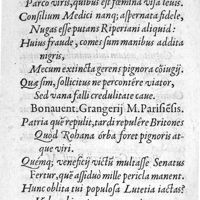 Parco viris, quibus est fœmina visa leuis.
Consilium Medici nanq; aspernata fidele,
Nugas esse putans Riperiani aliquid:
Huius fraude, comes sum manibus addita
nigris,
Mecum extincta gerens pignora cōiugij.
Quæ sim, sollicitus ne percontêre viator,
Sed vana falli credulitate caue.
Bonauent. Grangerij M. Parisiēsis.
Patria què repulit, tardi repulêre Britones
Quòd Rohana órba foret pignoris at-
que viri.
Quémq; veneficij victũ multasse Senatus
Fertur, què assiduò mille pericla manent.
Hunc oblita tui populosa Lutetia iactas?